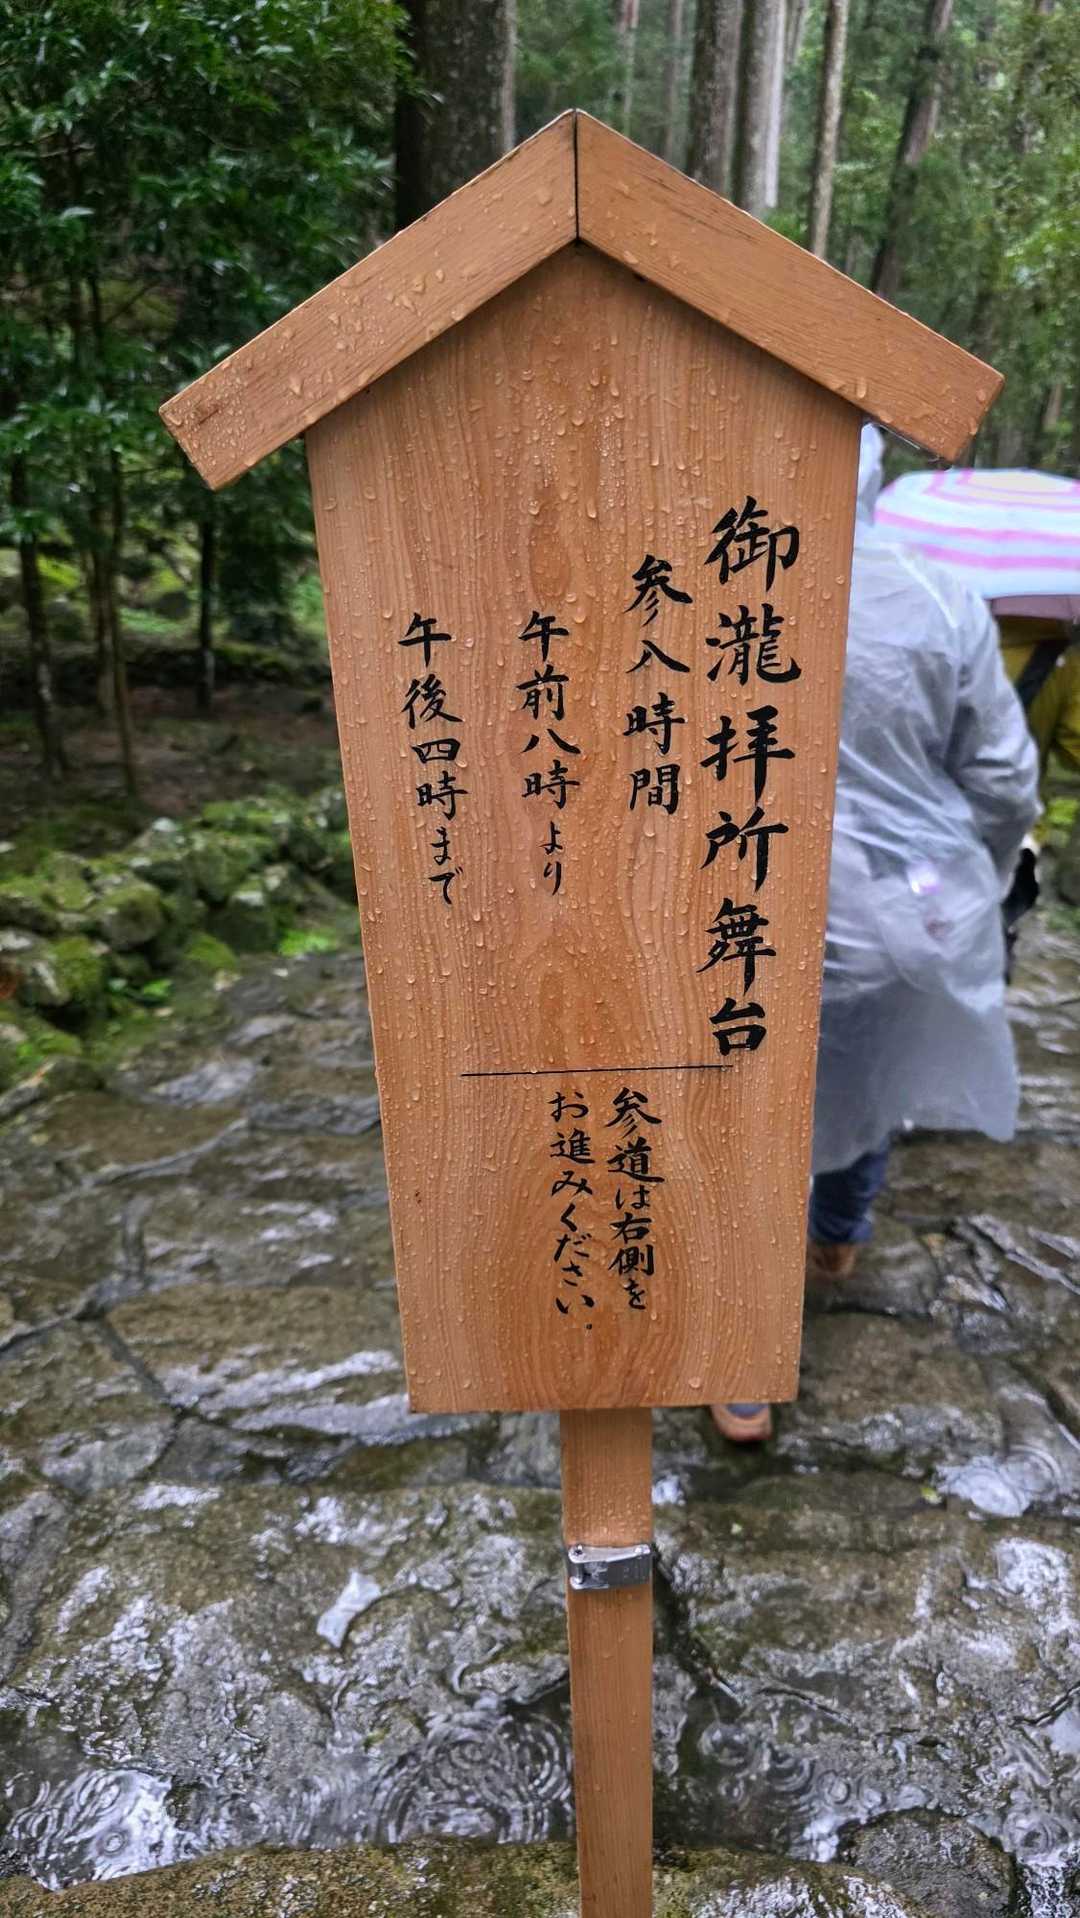 御瀧拝所舞台
参入時間
午前八時より
午後四時まで
参道は右側を
お進みください。